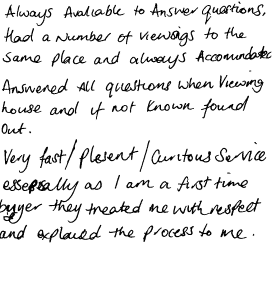 Always Avaliable to Answer questions,
Had a number of viewings to the
same place and always Accomodated
Answered All questions when Viewing
house and if not Known found
out.
Very fast/Plesent/Curitous Service
essepally as I am a first time
buyer they treated me with respect
and explaied the process to me.